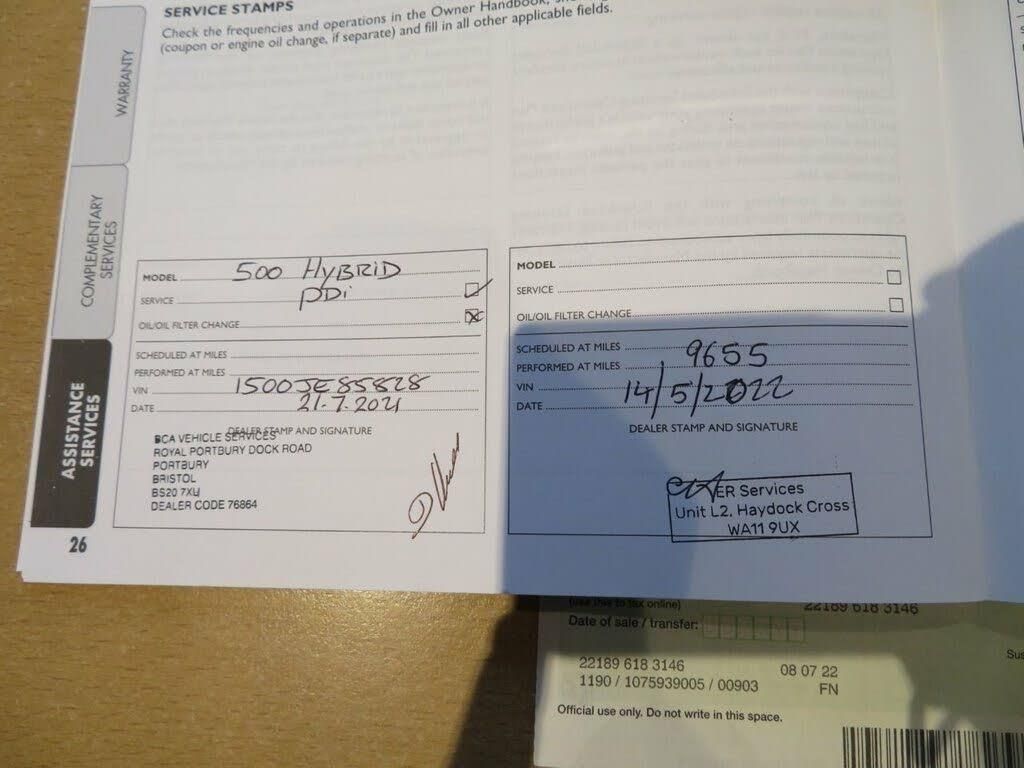 SERVICE STAMPS
Check the frequencies and operations in the Owner Handbook,
(coupon or engine oil change, if separate) and fill in all other applicable fields.
WARRANTY
COMPLEMENTARY
SERVICES
ASSISTANCE
SERVICES
MODEL 500 HYBRID
SERVICE PDi
OIL/OIL FILTER CHANGE
SCHEDULED AT MILES
PERFORMED AT MILES
VIN 1500JE85828
DATE 21.7.2021
DEALER STAMP AND SIGNATURE
BCA VEHICLE SERVICES
ROYAL PORTBURY DOCK ROAD
PORTBURY
BRISTOL
BS20 7XU
DEALER CODE 76864
26
MODEL
SERVICE
OIL/OIL FILTER CHANGE
SCHEDULED AT MILES
PERFORMED AT MILES 9655
VIN
DATE 14/5/2022
DEALER STAMP AND SIGNATURE
ER Services
Unit L2, Haydock Cross
WA11 9UX
(use this to tax online)
22189 618 3146
Date of sale / transfer:
22189 618 3146 08 07 22
1190 / 1075939005 / 00903 FN
Official use only. Do not write in this space.